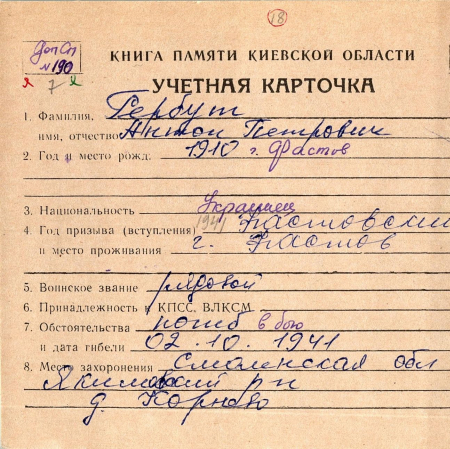 18
Доп Сп
N 190
7
КНИГА ПАМЯТИ КИЕВСКОЙ ОБЛАСТИ
УЧЕТНАЯ КАРТОЧКА
1. Фамилия, Гербут
имя, отчество Антон Петрович
2. Год и место рожд. 1910 г. Фастов
3. Национальность украинец
4. Год призыва (вступления) 1941 Фастовский
и место проживания г. Фастов
5. Воинское звание рядовой
6. Принадлежность к КПСС, ВЛКСМ
7. Обстоятельства погиб в бою
и дата гибели 02.10.1941
8. Место захоронения Смоленская обл
рн
д.